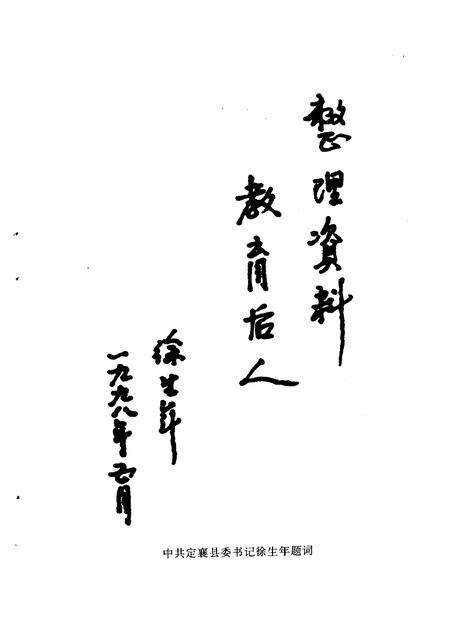 整理資料
教育后人
徐生年
一九九八年 月
中共定襄县委书记徐生年题词